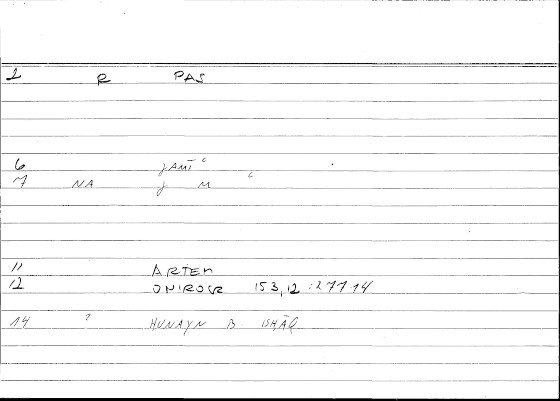 2 R PAS
6 ǧAMĪʿ
7 NA ǧ M ʿ
11 ARTEM
12 ONIROCR 153,12 : 277 14
14 ? HUNAYN B. ISHĀQ